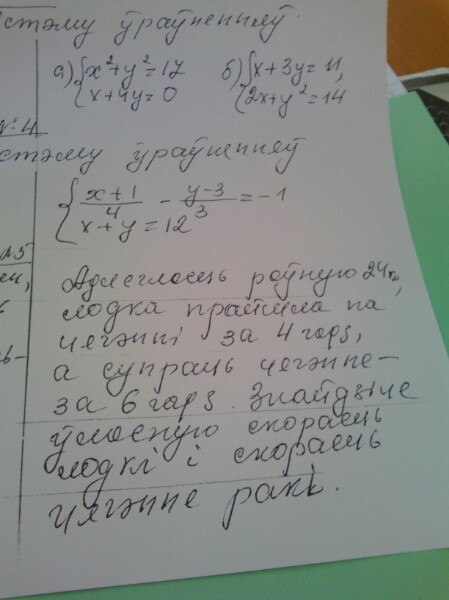 стэму ўраўненняў.
а) {x²+y²=17
x+4y=0
б) {x+3y=11,
2x+y²=14
№4
стэму ўраўненняў
{(x+1)/4 - (y-3)/3 = -1
x+y=12
Адлегласць роўную 24 км,
лодка прайшла па
цячэнні за 4 гадз,
а супраць цячэнне-
за 6 гадз. Знайдзіце
ўласную скорасць
лодкі і скорасць
цячэнне ракі.